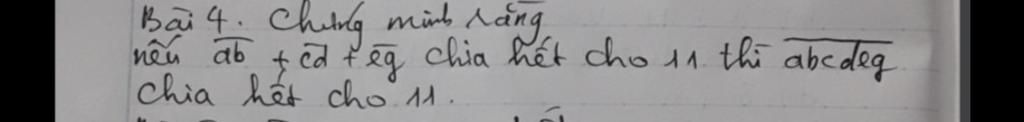 Bài 4. Chứng minh rằng
nếu ab + cd + eg chia hết cho 11 thì abcdeg
chia hết cho 11.